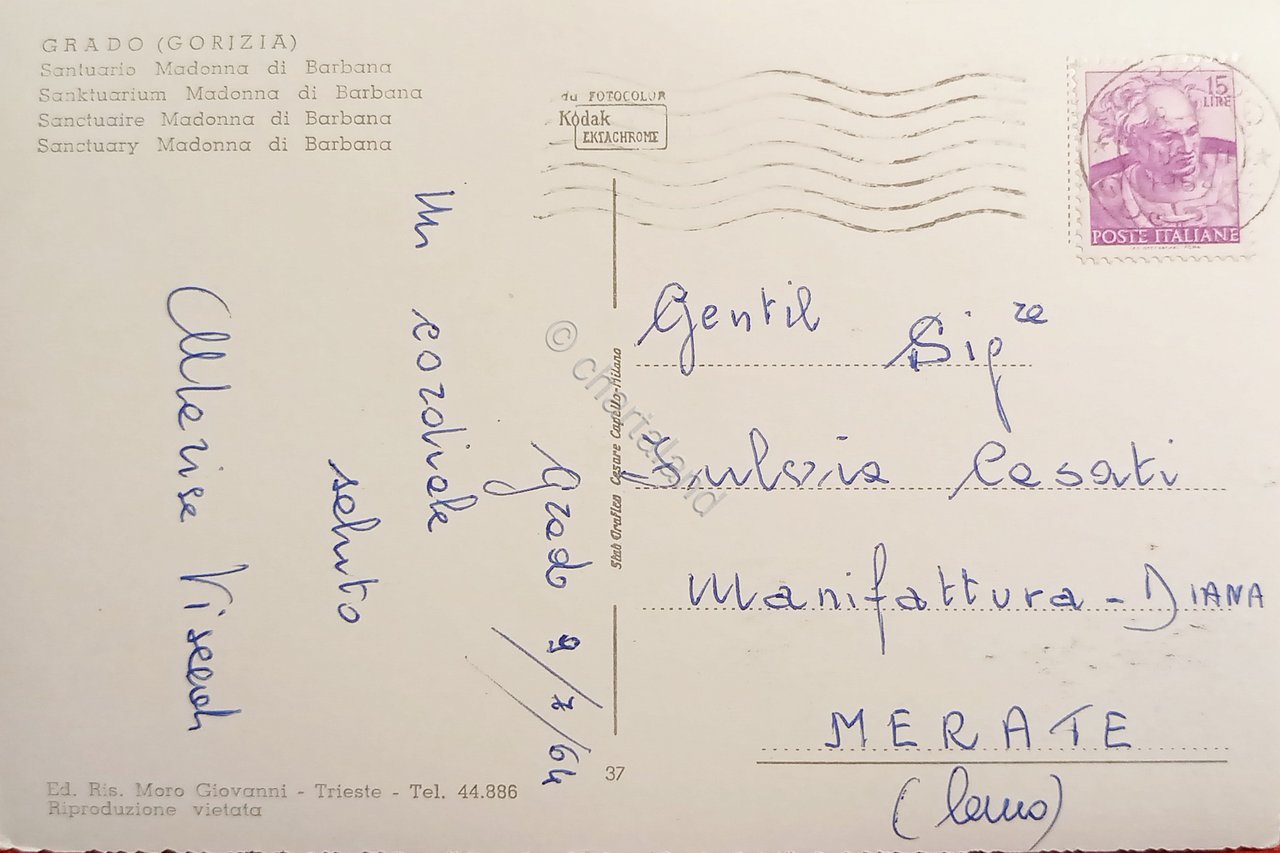 GRADO (GORIZIA)
Santuario Madonna di Barbana
Sanktuarium Madonna di Barbana
Sanctuaire Madonna di Barbana
Sanctuary Madonna di Barbana
da FOTOCOLOR
Kodak
EKTACHROME
15
LIRE
POSTE ITALIANE
Grado 9/7/64
Un cordiale
saluto
Gentil Sigre
Casati
Manifattura - DIANA
MERATE
(Como)
Stab Grafico Cesare Capello-Milano
© chartaland
37
Ed. Ris. Moro Giovanni - Trieste - Tel. 44.886
Riproduzione vietata